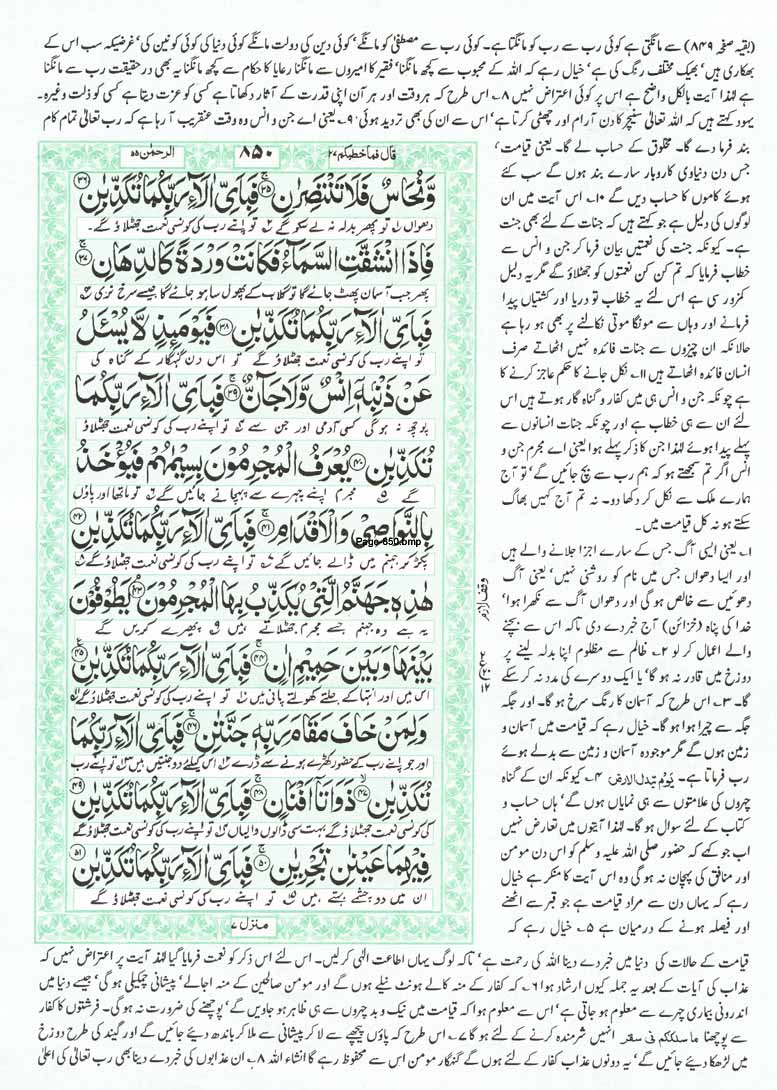 (بقیہ صفحہ ۸۴۹) سے مانگتی ہے کوئی رب سے رب کو مانگتا ہے۔ کوئی رب سے مصطفیٰ کو مانگے، کوئی دین کی دولت مانگے کوئی دنیا کی کوئی کونین کی، غرضیکہ سب اس کے
بھکاری ہیں، بھیک مختلف رنگ کی ہے، خیال رہے کہ اللہ کے محبوب سے کچھ مانگنا، فقیر کا امیروں سے مانگنا رعایا کا حکام سے کچھ مانگنا یہ بھی در حقیقت رب سے مانگنا
ہے لہٰذا آیت بالکل واضح ہے اس پر کوئی اعتراض نہیں ۸۔ اس طرح کہ ہر وقت اور ہر آن اپنی قدرت کے آثار دکھاتا ہے کسی کو عزت دیتا ہے کسی کو ذلت وغیرہ۔
یہود کہتے ہیں کہ اللہ تعالیٰ سنیچر کا دن آرام اور چھٹی کرتا ہے، اس سے ان کی بھی تردید ہوئی ۹۔ یعنی اے جن و انس وہ وقت عنقریب آ رہا ہے کہ رب تعالیٰ تمام کام
بند فرما دے گا۔ مخلوق کے حساب لے گا۔ یعنی قیامت،
جس دن دنیاوی کاروبار سارے بند ہوں گے سب کئے
ہوئے کاموں کا حساب دیں گے ۱۰۔ اس آیت میں ان
لوگوں کی دلیل ہے جو کہتے ہیں کہ جنات کے لئے بھی جنت
ہے۔ کیونکہ جنت کی نعمتیں بیان فرما کر جن و انس سے
خطاب فرمایا کہ تم کن کن نعمتوں کو جھٹلاؤ گے مگر یہ دلیل
کمزور سی ہے اس لئے یہ خطاب تو دریا اور کشتیاں پیدا
فرمانے اور وہاں سے مونگا موتی نکالنے پر بھی ہو رہا ہے
حالانکہ ان چیزوں سے جنات فائدہ نہیں اٹھاتے صرف
انسان فائدہ اٹھاتے ہیں ۱۱۔ نکل جانے کا حکم عاجز کرنے کا
ہے چونکہ جن و انس ہی میں کفار و گناہ گار ہوتے ہیں اس
لئے ان سے ہی خطاب ہے اور چونکہ جنات انسانوں سے
پہلے پیدا ہوئے لہٰذا جن کا ذکر پہلے ہوا یعنی اے مجرم جن و
انس اگر تم سمجھتے ہو کہ ہم رب سے بچ جائیں گے، تو آج
ہمارے ملک سے نکل کر دکھا دو۔ نہ تم آج کہیں بھاگ
سکتے ہو نہ کل قیامت میں۔
۱۔ یعنی ایسی آگ جس کے سارے اجزا جلانے والے ہیں
اور ایسا دھواں جس میں نام کو روشنی نہیں، یعنی آگ
دھوئیں سے خالص ہو گی اور دھواں آگ سے نکھرا ہوا،
خدا کی پناہ (خزائن) آج خبر دے دی تاکہ اس سے بچنے
والے اعمال کر لو ۲۔ ظالم سے مظلوم اپنا بدلہ لینے پر
دوزخ میں قادر نہ ہو گا، یا ایک دوسرے کی مدد نہ کر سکے
گا۔ ۳۔ اس طرح کہ آسمان کا رنگ سرخ ہو گا۔ اور جگہ
جگہ سے چیرا ہوا ہو گا۔ خیال رہے کہ قیامت میں آسمان و
زمین ہوں گے مگر موجودہ آسمان و زمین سے بدلے ہوئے
رب فرماتا ہے۔ يَوْمَ تُبَدَّلُ الْاَرْضُ ۴۔ کیونکہ ان کے گناہ
چہروں کی علامتوں سے ہی نمایاں ہوں گے، ہاں حساب و
کتاب کے لئے سوال ہو گا۔ لہٰذا آیتوں میں تعارض نہیں
اب جو کہے کہ حضور صلی اللہ علیہ وسلم کو اس دن مومن
اور منافق کی پہچان نہ ہو گی وہ اس آیت کا منکر ہے خیال
رہے کہ یہاں دن سے مراد قیامت ہے جو قبر سے اٹھنے
اور فیصلہ ہونے کے درمیان ہے ۵۔ خیال رہے کہ
قال فما خطبکم ۲۷
۸۵۰
الرحمٰن ۵۵
وَّنُحَاسٌ فَلَا تَنْتَصِرٰنِ ﴿۳۵﴾ فَبِاَىِّ اٰلَآءِ رَبِّكُمَا تُكَذِّبٰنِ ﴿۳۶﴾
دھواں تو پھر بدلہ نہ لے سکو گے تو اپنے رب کی کونسی نعمت جھٹلاؤ گے۔
فَاِذَا انْشَقَّتِ السَّمَآءُ فَكَانَتْ وَرْدَةً كَالدِّهَانِ ﴿۳۷﴾
پھر جب آسمان پھٹ جائے گا تو گلاب کے پھول سا ہو جائے گا جیسے سرخ نری
فَبِاَىِّ اٰلَآءِ رَبِّكُمَا تُكَذِّبٰنِ ﴿۳۸﴾ فَيَوْمَئِذٍ لَّا يُسْئَلُ
تو اپنے رب کی کونسی نعمت جھٹلاؤ گے تو اس دن گنہگار کے گناہ کی
عَنْ ذَنْۢبِهٖٓ اِنْسٌ وَّلَا جَآنٌّ ﴿۳۹﴾ فَبِاَىِّ اٰلَآءِ رَبِّكُمَا
پوچھ نہ ہو گی کسی آدمی اور جن سے تو اپنے رب کی کونسی نعمت جھٹلاؤ
تُكَذِّبٰنِ ﴿۴۰﴾ يُعْرَفُ الْمُجْرِمُوْنَ بِسِيْمٰهُمْ فَيُؤْخَذُ
گے مجرم اپنے چہرے سے پہچانے جائیں گے تو ماتھا اور پاؤں
بِالنَّوَاصِىْ وَالْاَقْدَامِ ﴿۴۱﴾ فَبِاَىِّ اٰلَآءِ رَبِّكُمَا تُكَذِّبٰنِ ﴿۴۲﴾
Page-850.bmp
پکڑ کر جہنم میں ڈالے جائیں گے تو اپنے رب کی کونسی نعمت جھٹلاؤ گے
هٰذِهٖ جَهَنَّمُ الَّتِىْ يُكَذِّبُ بِهَا الْمُجْرِمُوْنَ ﴿۴۳﴾ يَطُوْفُوْنَ
یہ ہے وہ جہنم جسے مجرم جھٹلاتے ہیں پھیرے کریں گے
بَيْنَهَا وَبَيْنَ حَمِيْمٍ اٰنٍ ﴿۴۴﴾ فَبِاَىِّ اٰلَآءِ رَبِّكُمَا تُكَذِّبٰنِ ﴿۴۵﴾
اس میں اور انتہا کے جلتے کھولتے پانی میں تو اپنے رب کی کونسی نعمت جھٹلاؤ گے
وَلِمَنْ خَافَ مَقَامَ رَبِّهٖ جَنَّتٰنِ ﴿۴۶﴾ فَبِاَىِّ اٰلَآءِ رَبِّكُمَا
اور جو اپنے رب کے حضور کھڑے ہونے سے ڈرے اس کیلئے دو جنتیں ہیں تو اپنے رب
تُكَذِّبٰنِ ﴿۴۷﴾ ذَوَاتَآ اَفْنَانٍ ﴿۴۸﴾ فَبِاَىِّ اٰلَآءِ رَبِّكُمَا تُكَذِّبٰنِ ﴿۴۹﴾
کی کونسی نعمت جھٹلاؤ گے بہت سی ڈالوں والیاں تو اپنے رب کی کونسی نعمت جھٹلاؤ گے
فِيْهِمَا عَيْنٰنِ تَجْرِيٰنِ ﴿۵۰﴾ فَبِاَىِّ اٰلَآءِ رَبِّكُمَا تُكَذِّبٰنِ ﴿۵۱﴾
ان میں دو چشمے بہتے ہیں تو اپنے رب کی کونسی نعمت جھٹلاؤ گے
منزل ۷
وقف لازم
قیامت کے حالات کی دنیا میں خبر دے دینا اللہ کی رحمت ہے، تاکہ لوگ یہاں اطاعت الٰہی کر لیں۔ اس لئے اس ذکر کو نعمت فرمایا گیا لہٰذا آیت پر اعتراض نہیں کہ
عذاب کی آیات کے بعد یہ جملہ کیوں ارشاد ہوا ۶۔ کہ کفار کے منہ کالے ہونٹ نیلے ہوں گے اور مومن صالحین کے منہ اجالے، پیشانی چمکیلی ہو گی، جیسے دنیا میں
اندرونی بیماری چہرے سے معلوم ہو جاتی ہے، اس سے معلوم ہوا کہ قیامت میں نیک و بد چہروں سے ہی ظاہر ہو جاویں گے، پوچھنے کی ضرورت نہ ہو گی۔ فرشتوں کا کفار
سے پوچھنا مَا سَلَكَكُمْ فِىْ سَقَرَ انہیں شرمندہ کرنے کے لئے ہو گا ۷۔ اس طرح کہ پاؤں پیچھے سے لا کر پیشانی سے ملا کر باندھ دیئے جائیں گے اور گیند کی طرح دوزخ
میں لڑھکا دیئے جائیں گے، یہ دونوں عذاب کفار کے لئے ہوں گے گنہگار مومن اس سے محفوظ رہے گا انشاء اللہ ۸۔ ان عذابوں کی خبر دے دینا بھی رب تعالیٰ کی اعلیٰ